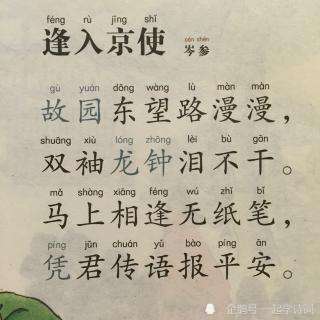 féng rù jīng shǐ
逢入京使
cén shēn
岑参
gù yuán dōng wàng lù màn màn
故园东望路漫漫，
shuāng xiù lóng zhōng lèi bù gān
双袖龙钟泪不干。
mǎ shàng xiāng féng wú zhǐ bǐ
马上相逢无纸笔，
píng jūn chuán yǔ bào píng ān
凭君传语报平安。
企鹅号 一起学诗词